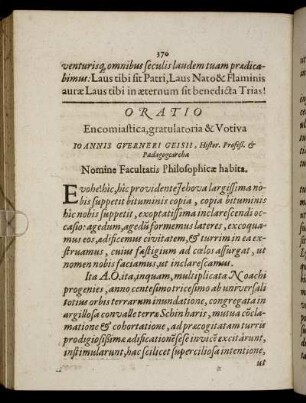 370
venturisq; omnibus seculis laudem tuam prædica-
bimus: Laus tibi sit Patri, Laus Nato & Flaminis
auræ Laus tibi in æternum sit benedicta Trias!
ORATIO
Encomiastica, gratulatoria & Votiva
IO ANNIS GVERNERI GEISII, Histor. Profess. &
Pædagogiarcha
Nomine Facultatis Philosophicæ habita.
Evohe! hîc, hîc providente Jehova largissima no-
bis suppetit bituminis copia, copia bituminis
hîc nobis suppetit, exoptatissima inclarescendi oc-
casio: agedum, agedũ formemus lateres, excoqua-
mus eos, ædificemus civitatem, & turrim in ea ex-
struamus, cuius fastigium ad cœlos assurgat, ut
nomen nobis faciamus, ut inclarescamus.
Ita A. O. ita, inquam, multiplicata Noachi
progenies, anno centesimo tricesimo ab universali
totius orbis terrarum inundatione, congregata in
argillosa convalle terræ Schinharis, mutua cõcla-
matione & cohortatione, ad præcogitatam turris
prodigiosissimæ ædificationẽ sese invicẽ excitârunt,
instimulârunt, hac scilicet superciliosa intentione,
ut